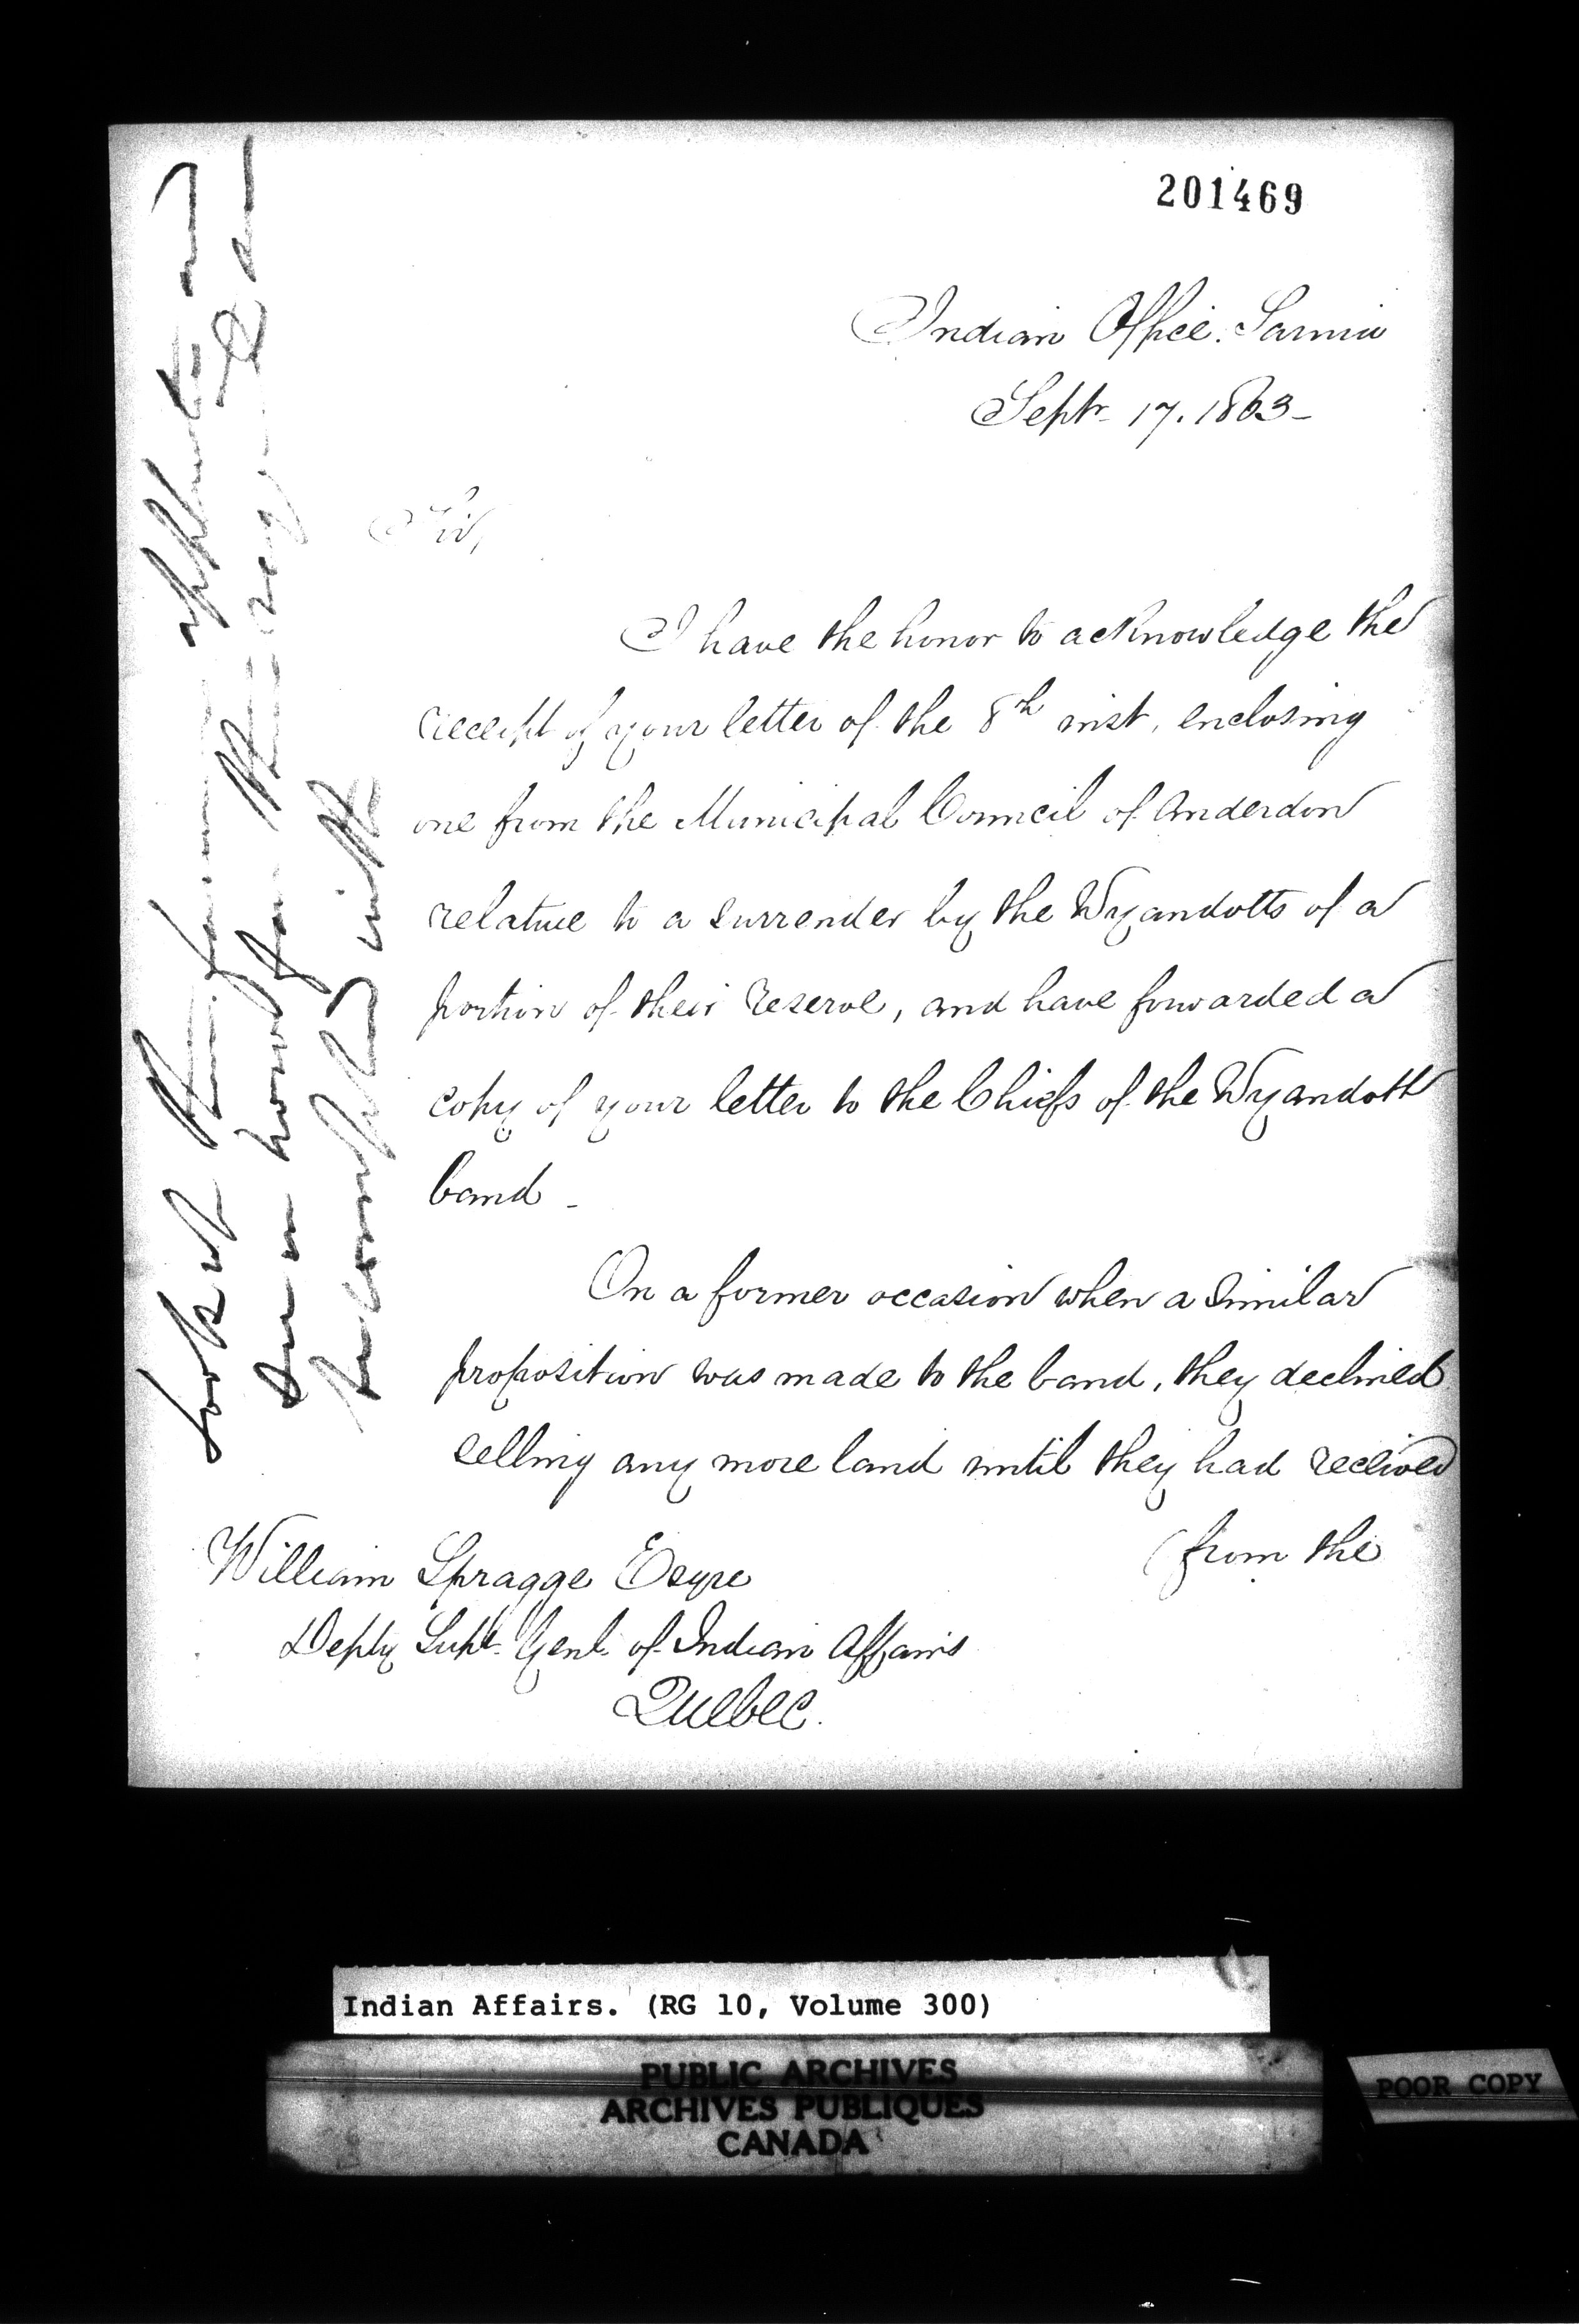 201469
Indian Office. Sarnia
Septr. 17. 1863 -
Sir,
I have the honor to acknowledge the
receipt of your letter of the 8th inst, enclosing
one from the Municipal Council of Anderdon
relative to a surrender by the Wyandotts of a
portion of their reserve, and have forwarded a
copy of your letter to the Chiefs of the Wyandott
band -
On a former occasion when a similar
proposition was made to the band, they declined
selling any more land until they had received
(from the
William Spragge Esqre
Depty Supt. Genl. of Indian Affairs
Quebec.
Look up
Indian Affairs. (RG 10, Volume 300)
PUBLIC ARCHIVES
ARCHIVES PUBLIQUES
CANADA
POOR COPY